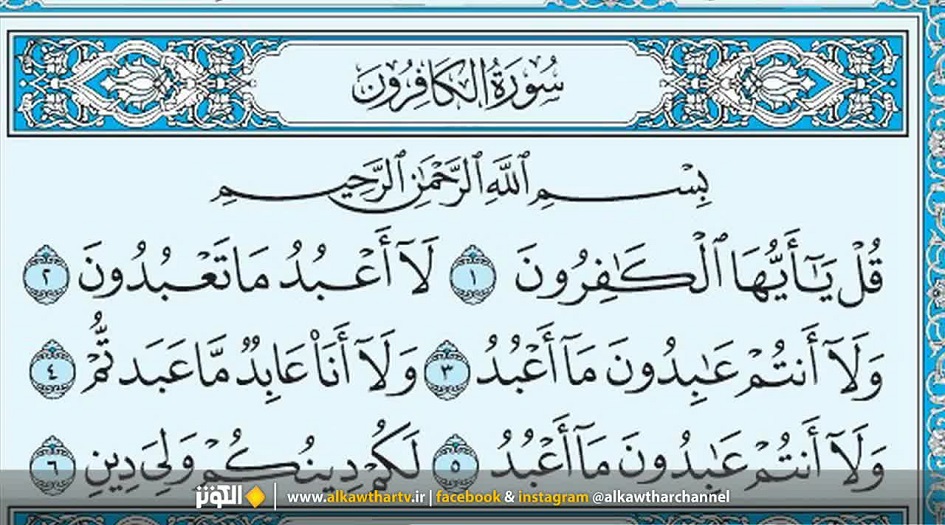 سُورَةُ الكَافِرُونَ
بِسْمِ ٱللَّهِ ٱلرَّحْمَٰنِ ٱلرَّحِيمِ
قُلْ يَٰٓأَيُّهَا ٱلْكَٰفِرُونَ ١ لَآ أَعْبُدُ مَا تَعْبُدُونَ ٢
وَلَآ أَنتُمْ عَٰبِدُونَ مَآ أَعْبُدُ ٣ وَلَآ أَنَا۠ عَابِدٌ مَّا عَبَدتُّمْ ٤
وَلَآ أَنتُمْ عَٰبِدُونَ مَآ أَعْبُدُ ٥ لَكُمْ دِينُكُمْ وَلِىَ دِينِ ٦
الكوثر www.alkawthartv.ir | facebook & instagram @alkawtharchannel